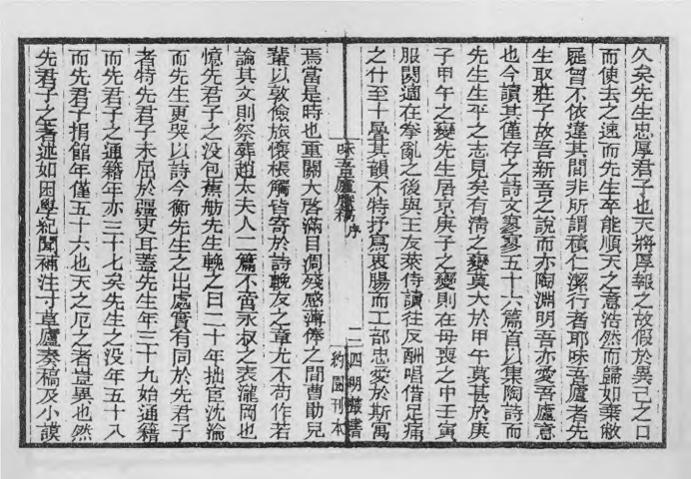 久矣先生忠厚君子也天將厚報之故假於異己之口
而使去之速而先生卒能順天之意浩然而歸如棄敝
屣曾不依違其間非所謂積仁潔行者耶味吾廬者先
生取莊子故吾新吾之說而亦陶淵明吾亦愛吾廬意
也今讀其僅存之詩文寥寥五十六篇首以集陶詩而
先生生平之志見矣有淸之變莫大於甲午莫甚於庚
子甲午之變先生居京庚子之變則在母喪之中壬寅
服闋適在拳亂之後與王友萊侍讀往反酬唱借足痛
之什至十疊其韻不特抒寫衷腸而工部忠愛於斯寓
味吾廬廬稿 序
二 四明叢書
約園刊本
焉當是時也重關大啓滿目凋殘感薄俸之間曹勖兒
輩以敦儉旅懷棖觸皆寄於詩輓友之章尤不苟作若
論其文則祭葬趙太夫人二篇不啻永叔之表瀧岡也
憶先君子之沒包蕉舫先生輓之曰二十年拙宦沈淪
而先生更哭以詩今衡先生之出處實有同於先君子
者特先君子未屈於疆吏耳蓋先生年三十九始通籍
而先君子之通籍年亦三十七矣先生之沒年五十八
而先君子捐館年僅五十六也天之厄之者豈異也然
先君子之著述如困學紀聞補注寸草廬奏稿及小謨